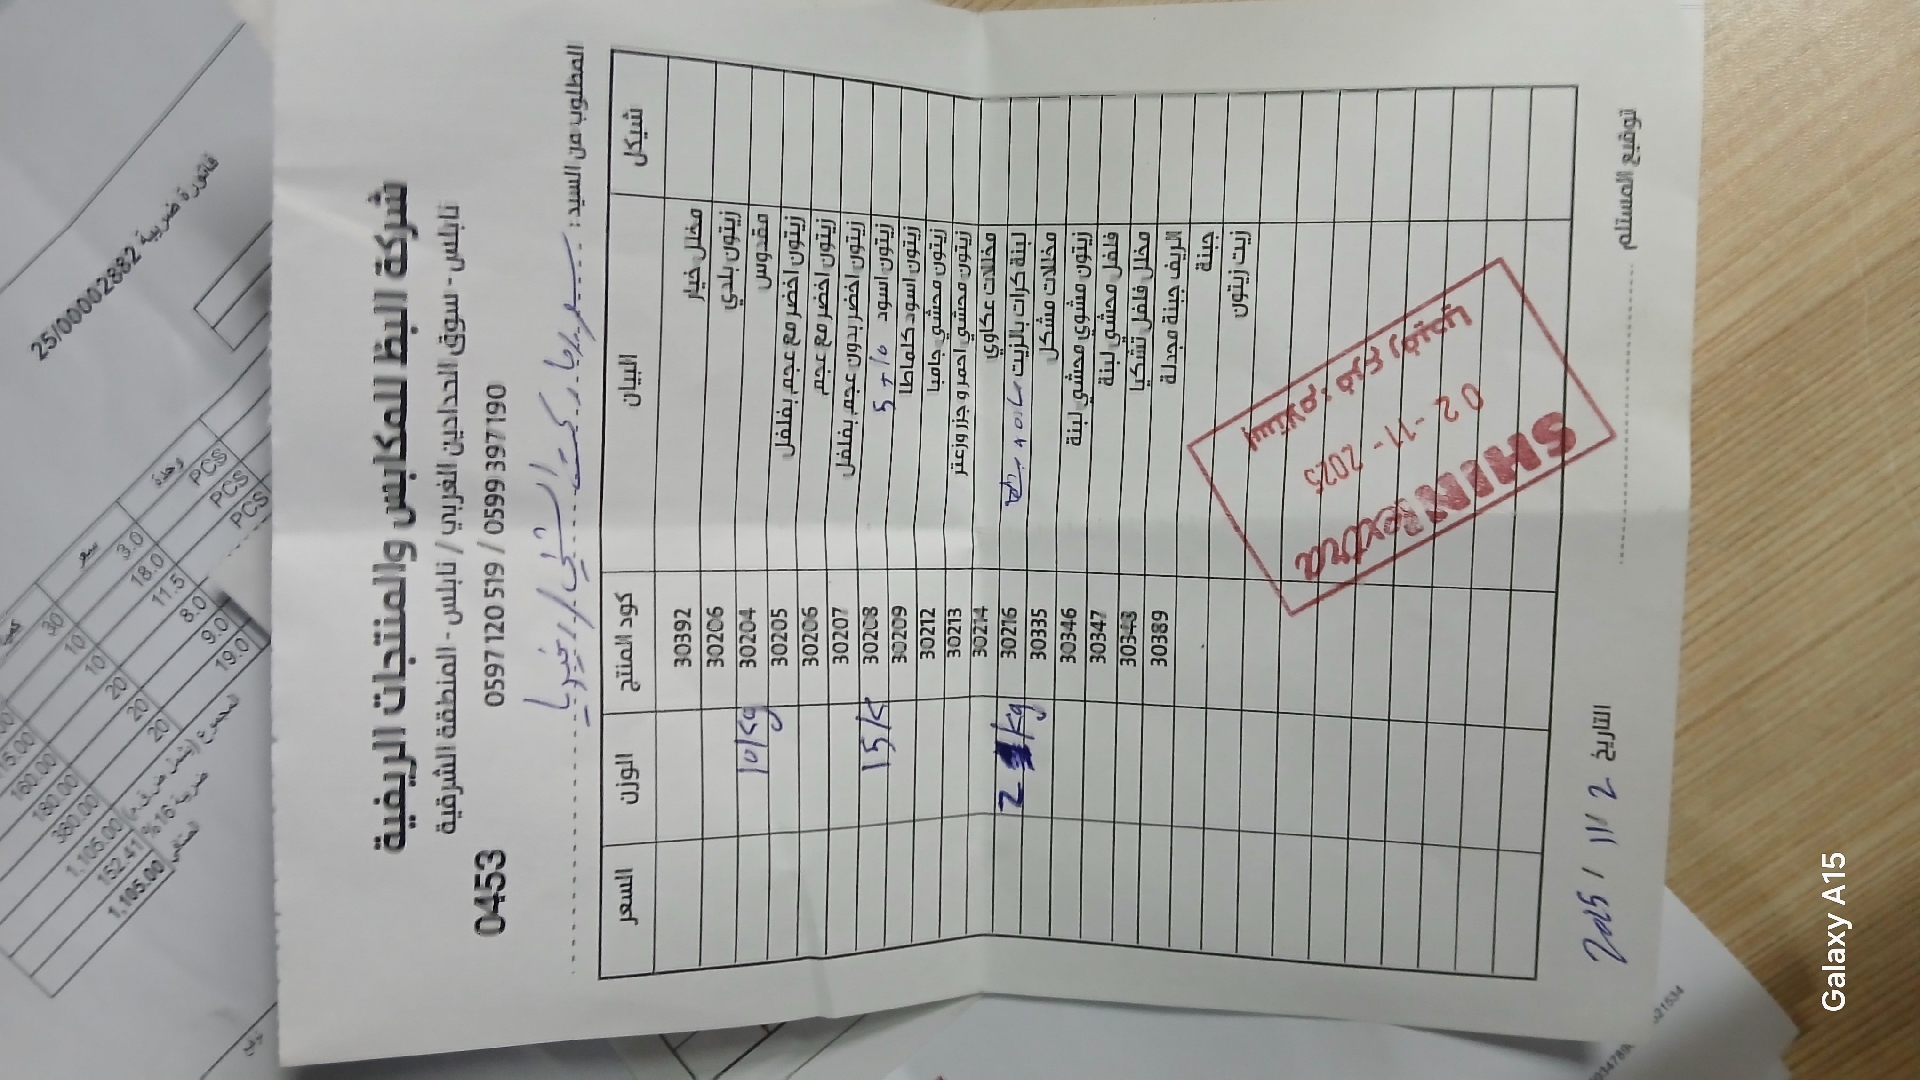 شركة البظ للمكابس والمنتجات الريفية
نابلس - سوق الحدادين الغربي / نابلس - المنطقة الشرقية
0453 0597 120 519 / 0599 397190
المطلوب من السيد:
شيكل البيان كود المنتج الوزن السعر
مخلل خيار 30392
زيتون بلدي 30206
مقدوس 30204 10kg
زيتون اخضر مع عجم بفلفل 30205
زيتون اخضر مع عجم 30206
زيتون اخضر بدون عجم بفلفل 30207
زيتون اسود 10 + 5 30208 15k
زيتون اسود كلماطا 30209
زيتون محشي جامبا 30212
زيتون محشي احمر و جزر وزعتر 30213
مخللات عكاوي 30214
لبنة كرات بالزيت 30216 2 kg
مخللات مشكل 30335
زيتون مشوي محشي لبنة 30346
فلفل محشي لبنة 30347
مخلل فلفل تشركيا 30343
الريف جبنة مجدلة 30389
جبنة
زيت زيتون
SHINI extra
02-11-2025
استلام: فرع رفيديا
توقيع المستلم التاريخ 2 / 11 / 2025
فاتورة ضريبية 25/00002882
سعر وحدة
30 3.0 PCS
10 18.0 PCS
10 11.5 PCS
20 8.0
160.00 20 9.0
180.00 20 19.0
380.00
1,105.00
ضريبة 16% 152.41
1,105.00
Galaxy A15